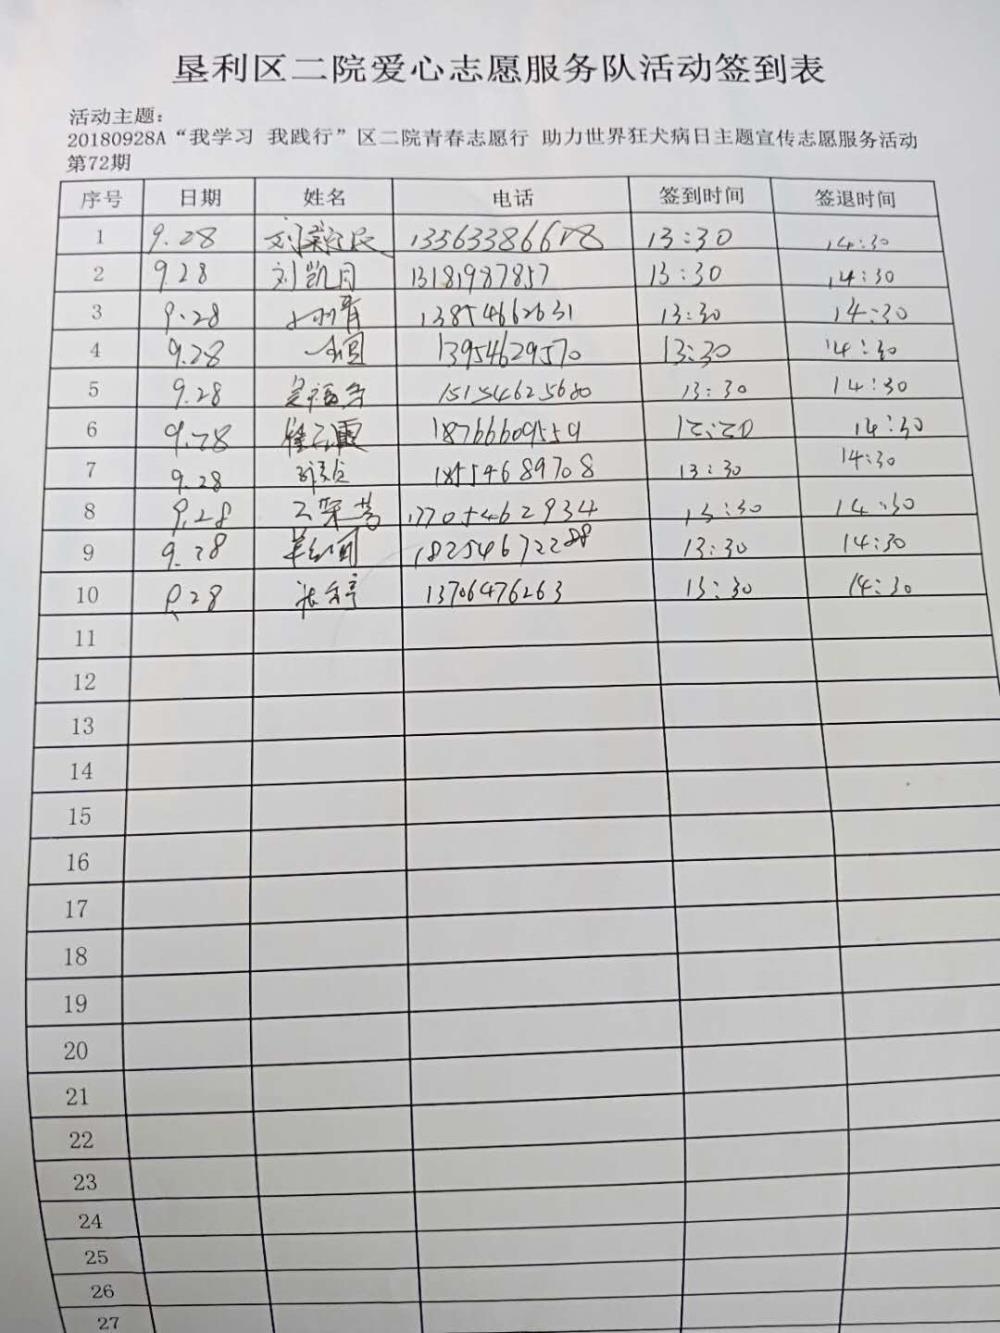 垦利区二院爱心志愿服务队活动签到表
活动主题：
20180928A“我学习 我践行”区二院青春志愿行 助力世界狂犬病日主题宣传志愿服务活动
第72期
序号 日期 姓名 电话 签到时间 签退时间
1 9.28 13563386678 13:30 14:30
2 9.28 刘凯月 13181987857 13:30 14:30
3 9.28 13854662631 13:30 14:30
4 9.28 13954629570 13:30 14:30
5 9.28 15154625680 13:30 14:30
6 9.28 18766609559 14:30
7 9.28 18554689708 13:30 14:30
8 9.28 17705462934 13:30 14:30
9 9.28 13:30 14:30
10 9.28 张 13706476263 13:30 14:30
11
12
13
14
15
16
17
18
19
20
21
22
23
24
25
26
27